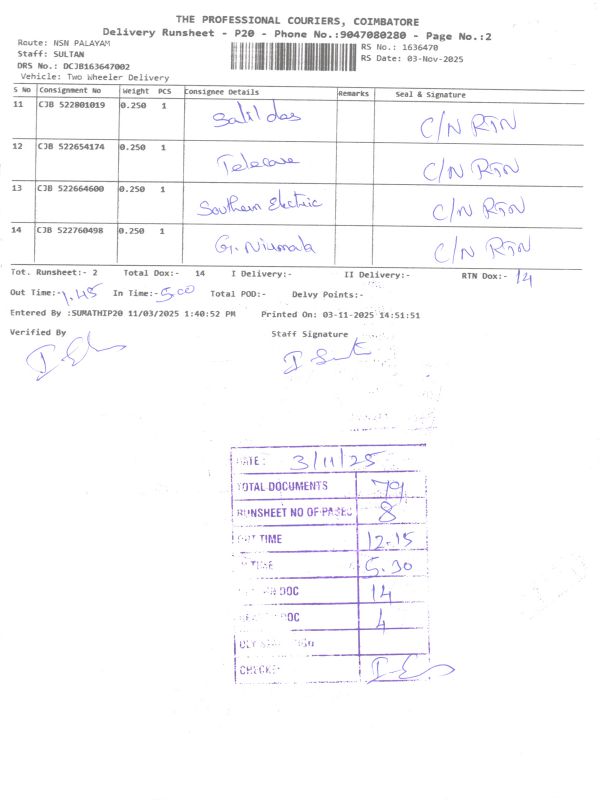 THE PROFESSIONAL COURIERS, COIMBATORE
Delivery Runsheet - P20 - Phone No.:9047080280 - Page No.:2
Route: NSN PALAYAM
RS No.: 1636470
Staff: SULTAN
RS Date: 03-Nov-2025
DRS No.: DCJB163647002
Vehicle: Two Wheeler Delivery
S No Consignment No Weight PCS Consignee Details Remarks Seal & Signature
11 CJB 522801019 0.250 1 Salil das C/N RTN
12 CJB 522654174 0.250 1 Telecare C/N RTN
13 CJB 522664600 0.250 1 Southern Electric C/N RTN
14 CJB 522760498 0.250 1 G. Nirmala C/N RTN
Tot. Runsheet:- 2 Total Dox:- 14 I Delivery:- II Delivery:- RTN Dox:- 14
Out Time:- 1.45 In Time:- 5.00 Total POD:- Delvy Points:-
Entered By :SUMATHIP20 11/03/2025 1:40:52 PM Printed On: 03-11-2025 14:51:51
Verified By Staff Signature
DATE: 3/11/25
TOTAL DOCUMENTS 79
RUNSHEET NO OF PAGES 8
OUT TIME 12.15
IN TIME 5.30
DOC 14
DOC 4
CHECK